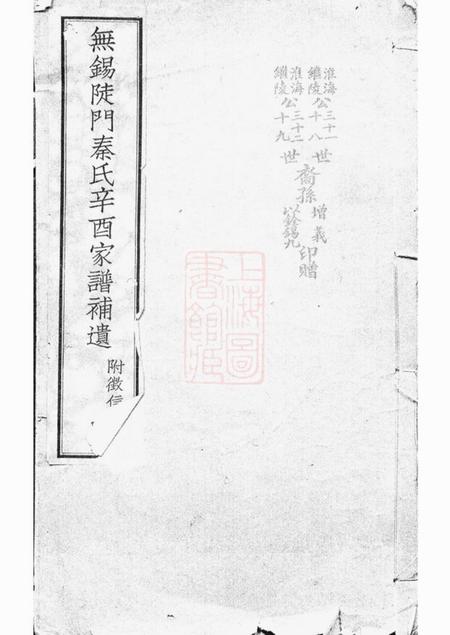 淮海公三十一世
繼陵公十八世
裔孫增義印贈
淮海公三十二世
繼陵公十九世
以銓錫九
上海圖書館藏
無錫陡門秦氏辛酉家譜補遺
附徵信